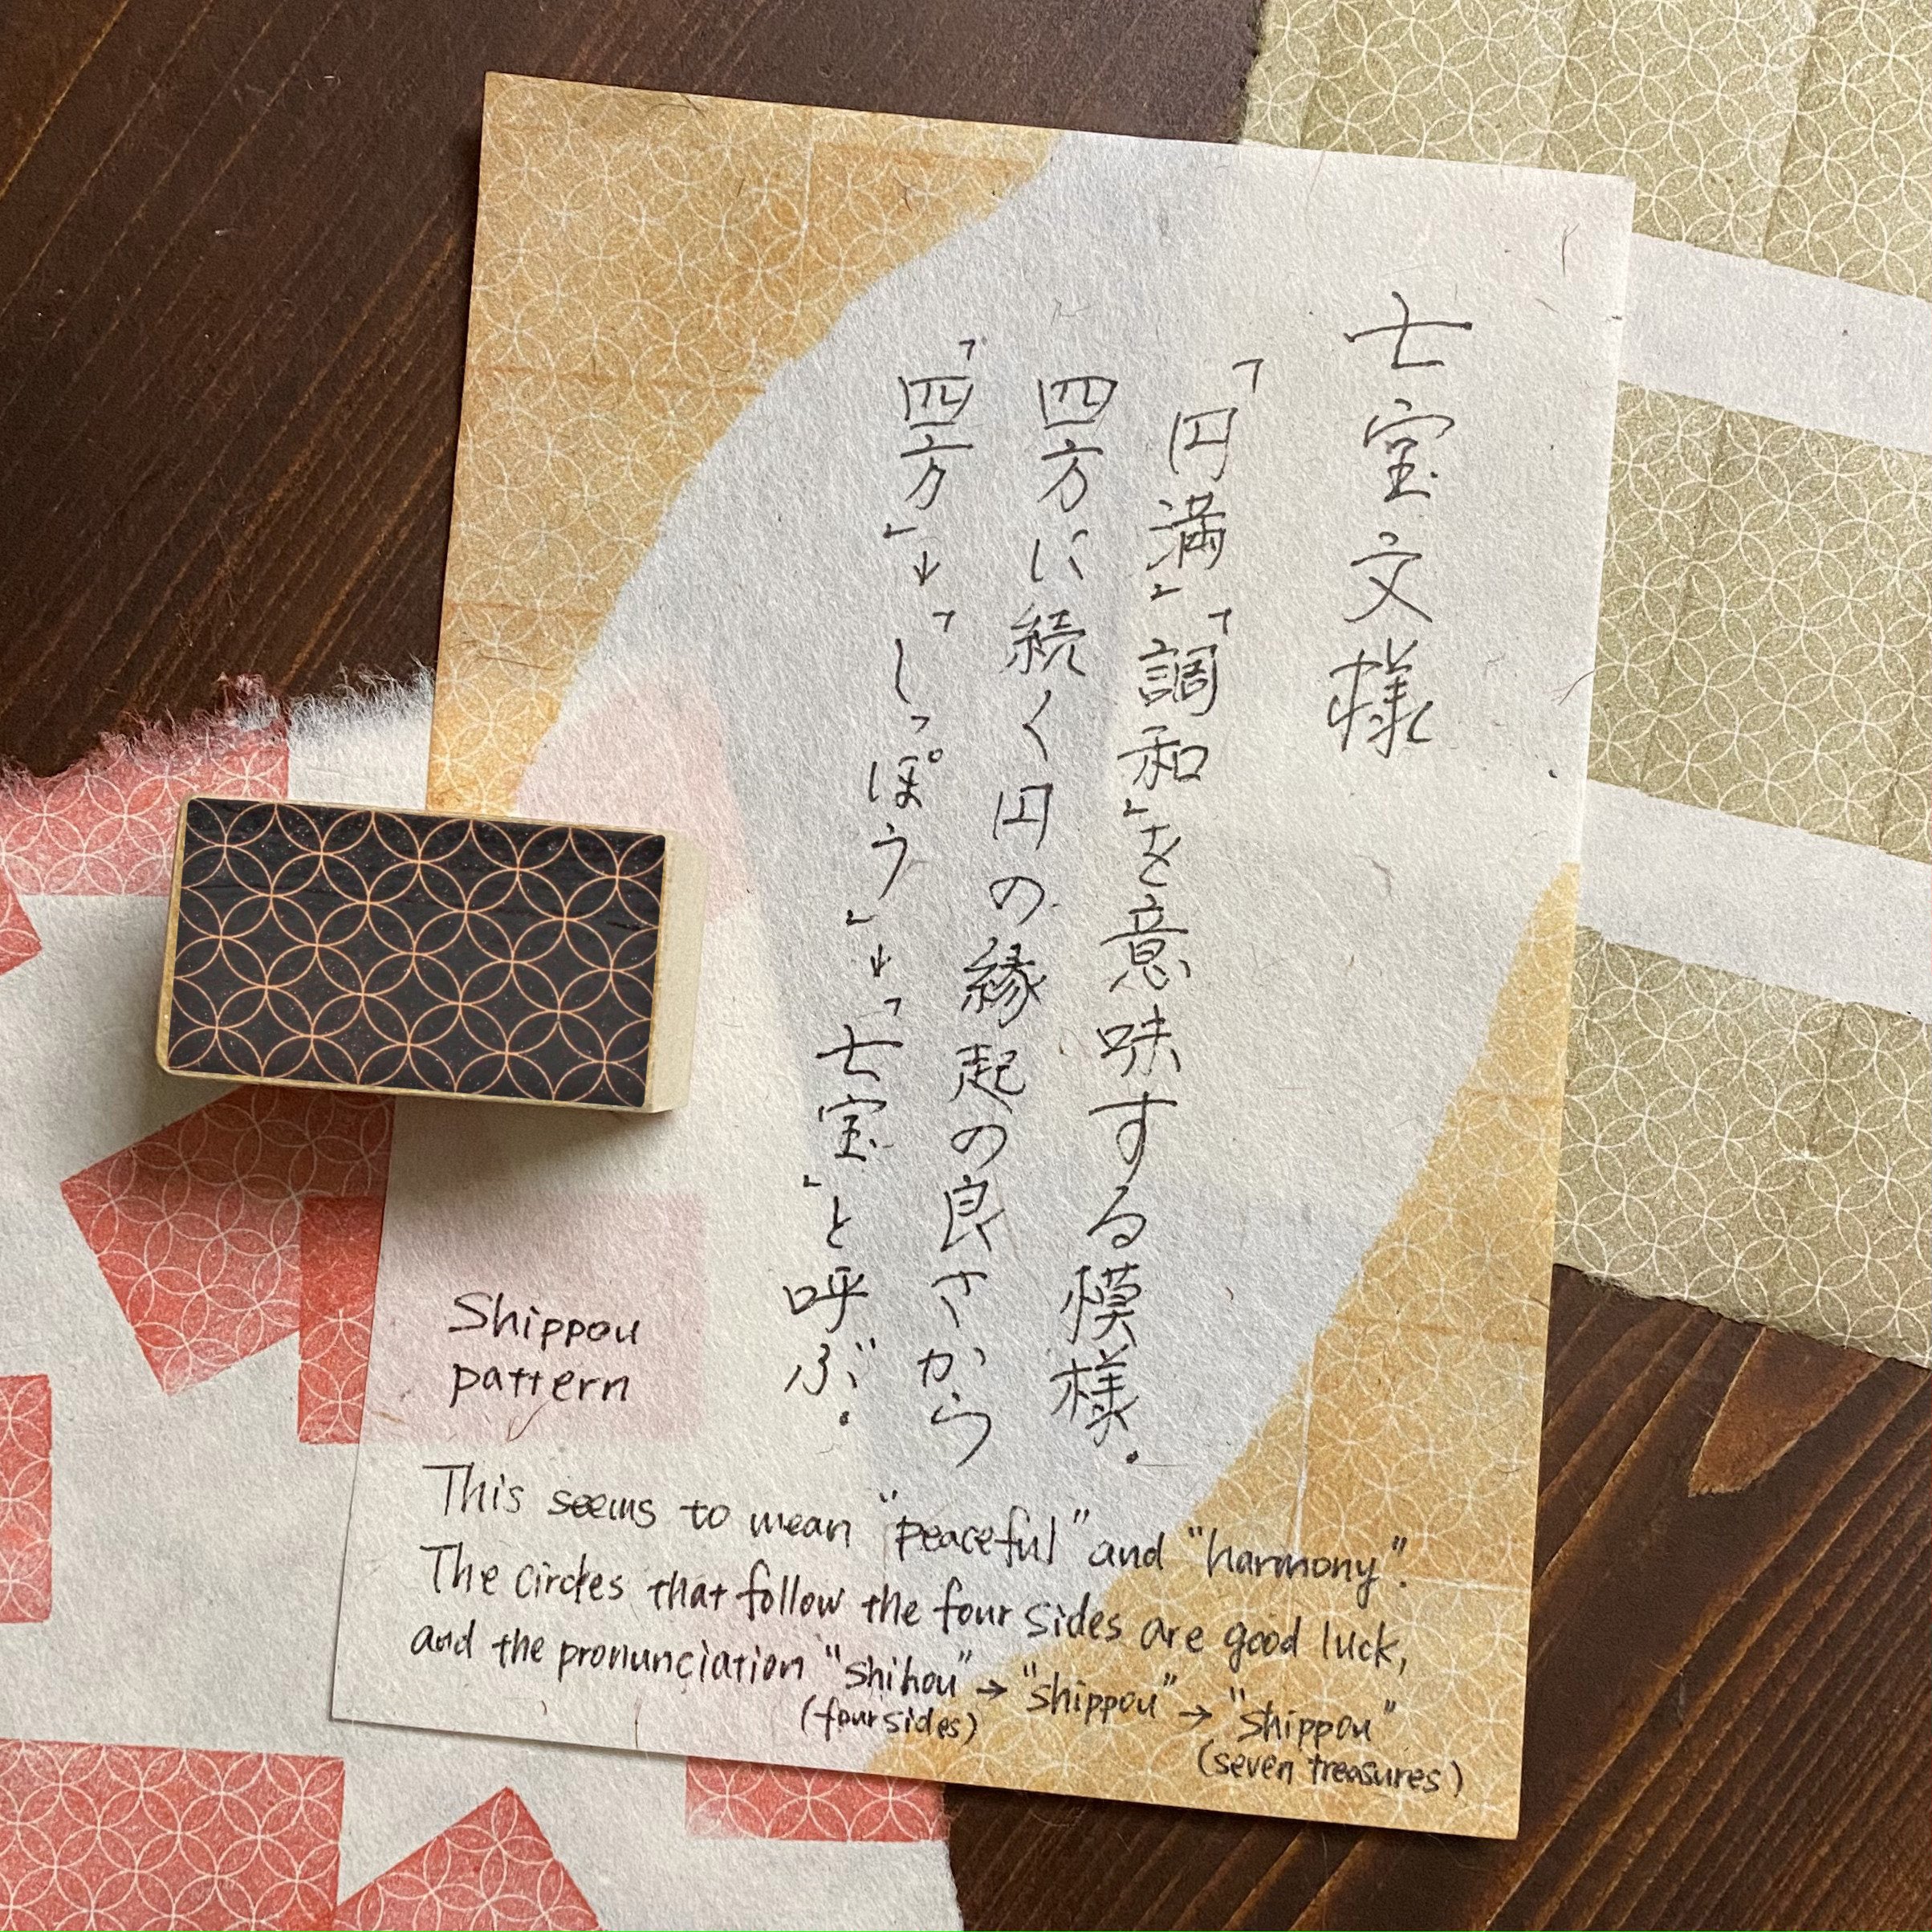 七宝文様
「円満」「調和」を意味する模様.
四方に続く円の縁起の良さから
「四方」→「しっぽう」→「七宝」と呼ぶ.
Shippou
pattern
This seems to mean "peaceful" and "harmony".
The circles that follow the four sides are good luck,
and the pronunciation "shihou" → "shippou" → "shippou"
(four sides)
(seven treasures)